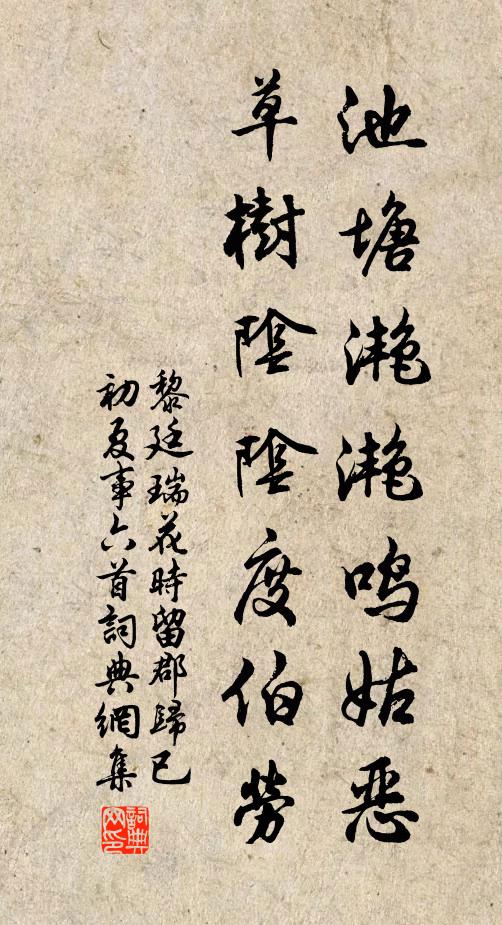 池塘滟滟鸣姑恶
草樹陰陰度伯勞
黎廷瑞花時留郡歸已
初夏事六首詞典網集
詞典
网印